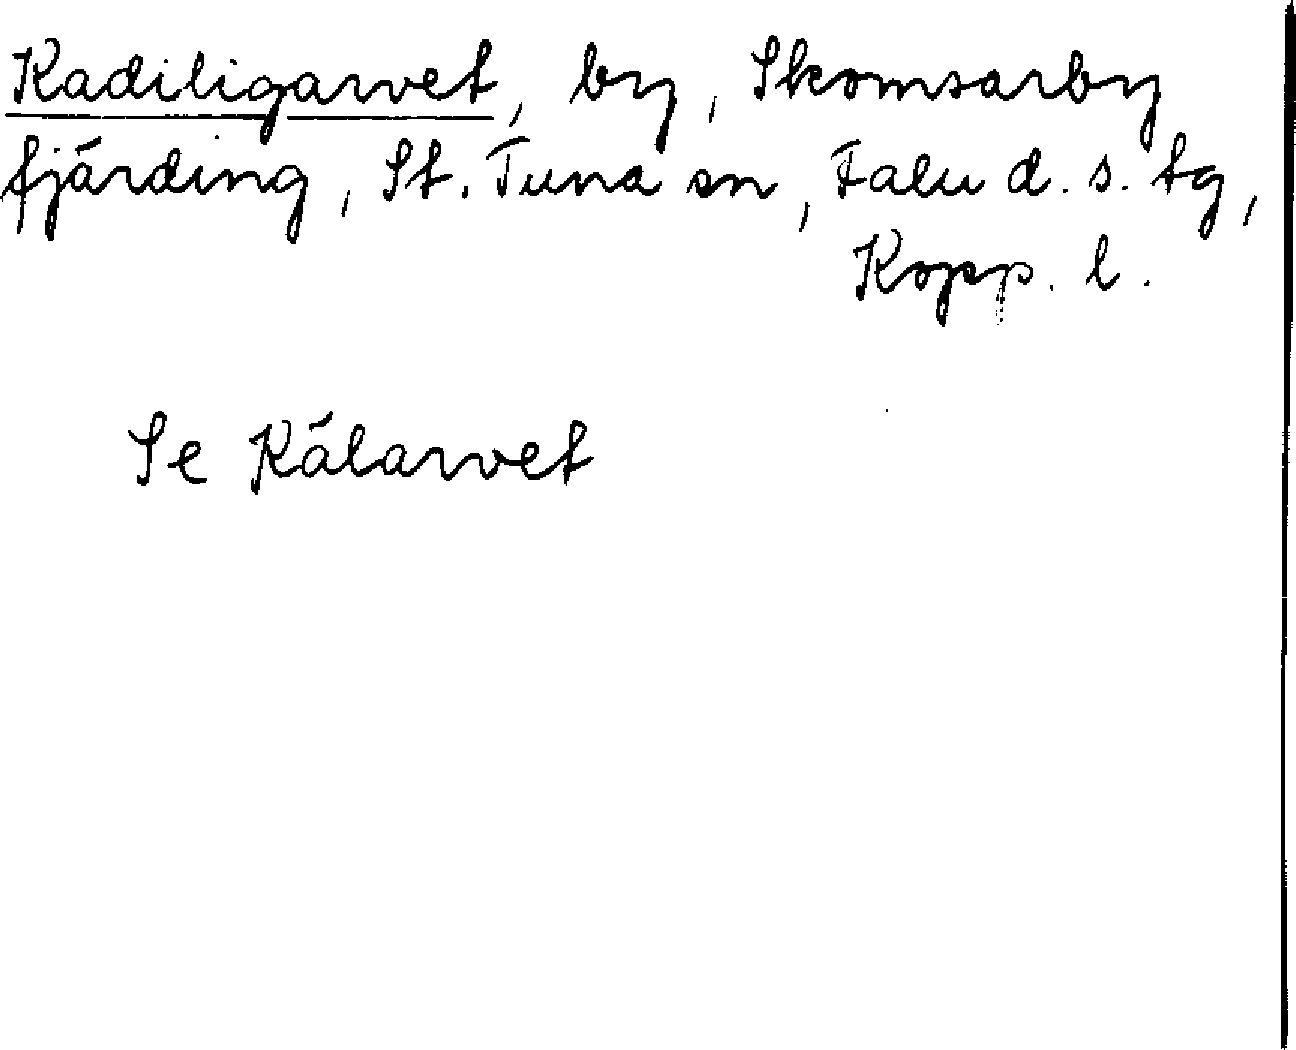 Kadiligarvet, by, Skomsarby
fjärding, St. Tuna sn, Falu d. s. tg,
Kopp. l.
Se Kälarvet